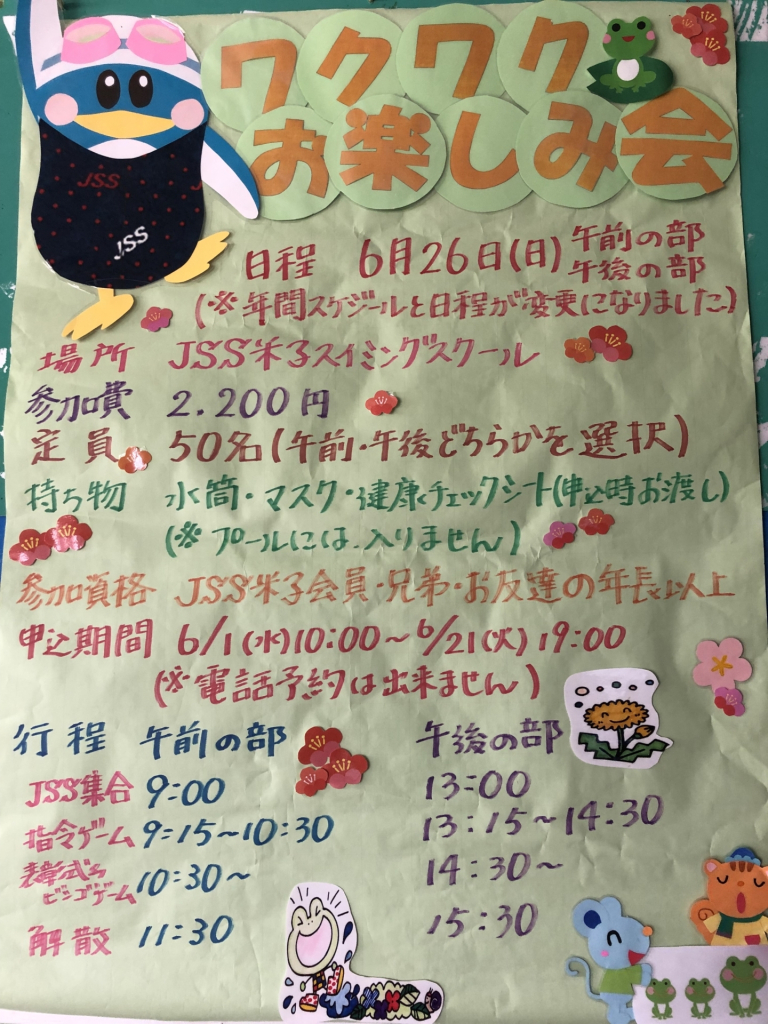 ワクワク
お楽しみ会
JSS
JSS
日程 6月26日(日) 午前の部
午後の部
(※年間スケジールと日程が変更になりました)
場所 JSS米子スイミングスクール
参加費 2.200円
定員 50名(午前・午後どちらかを選択)
持ち物 水筒・マスク・健康チェックシート(申込時お渡し)
(※プールには、入りません)
参加資格 JSS米子会員・兄弟・お友達の年長以上
申込期間 6/1(水)10:00~6/21(火)19:00
(※電話予約は出来ません)
行程 午前の部 午後の部
JSS集合 9:00 13:00
指令ゲーム 9:15~10:30 13:15~14:30
表彰式&
ビンゴゲーム 10:30~ 14:30~
解散 11:30 15:30